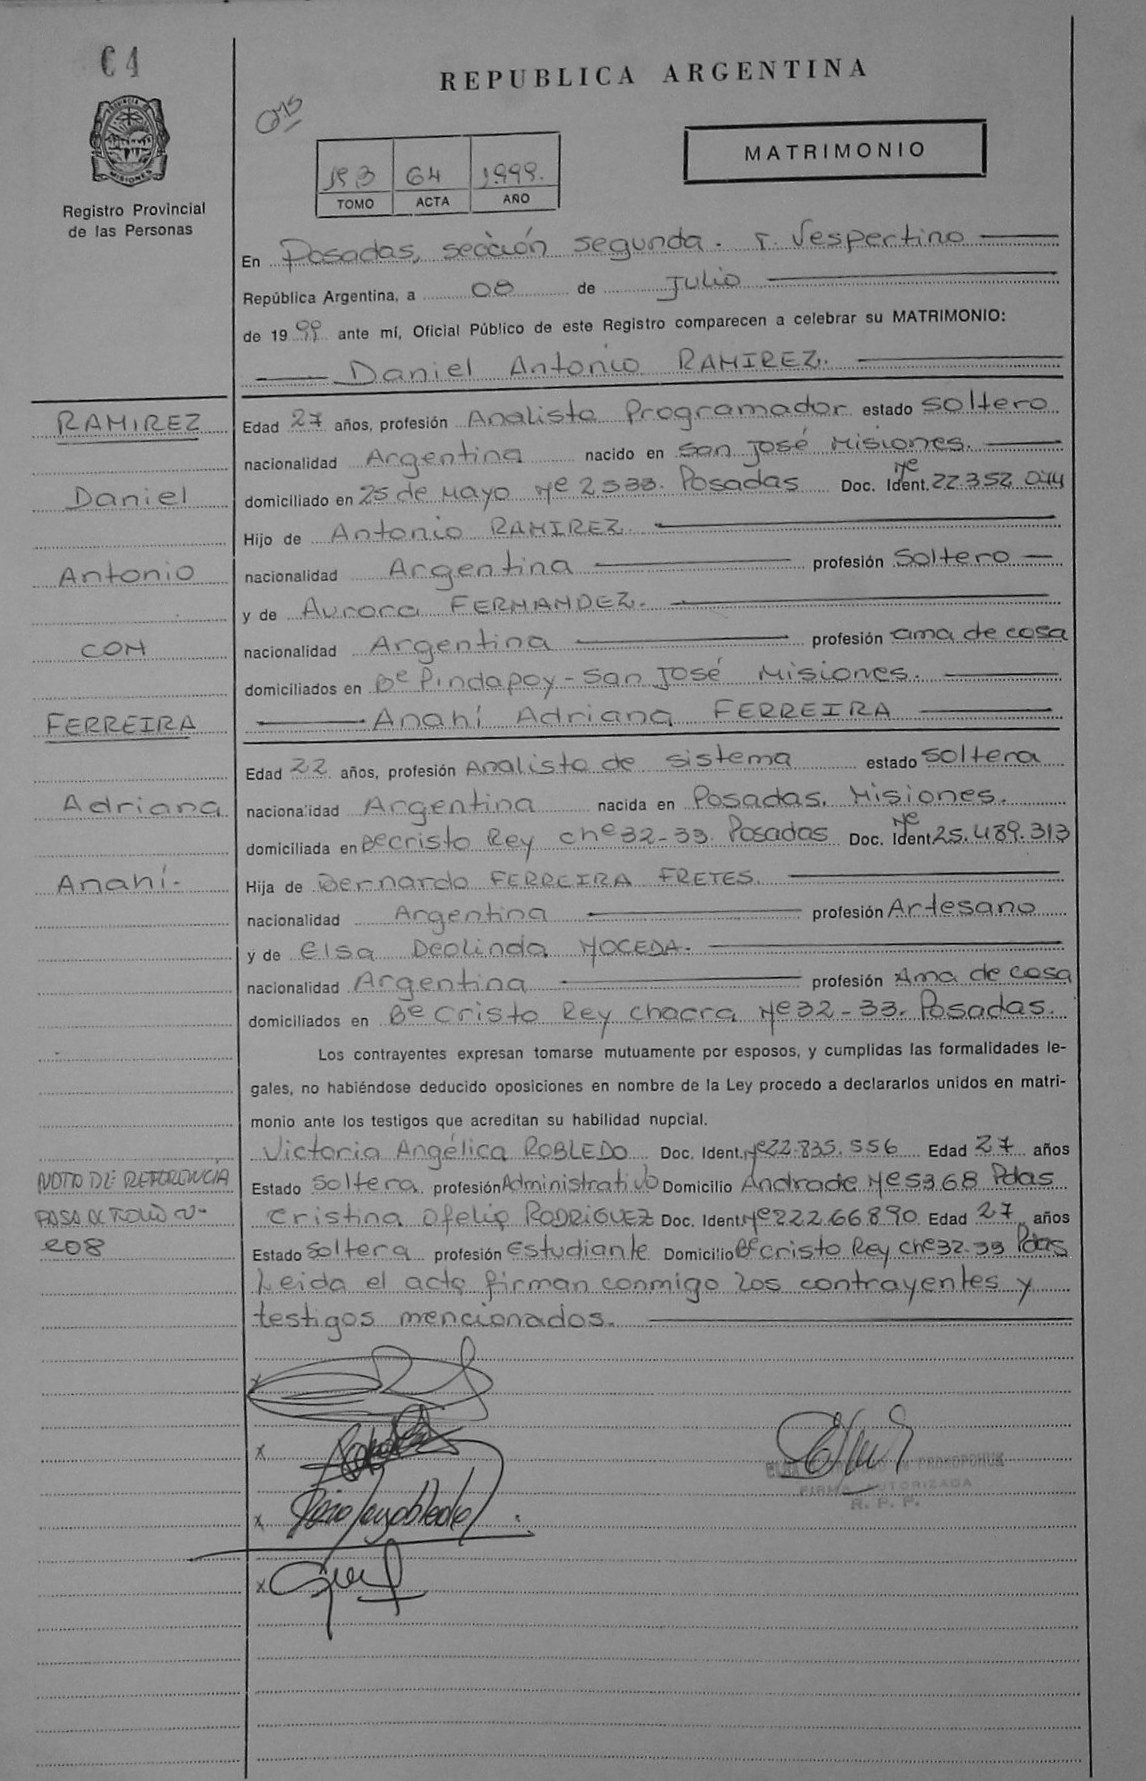 64
REPUBLICA ARGENTINA
PROVINCIA DE
MISIONES
Registro Provincial
de las Personas
MATRIMONIO
64 1999.
TOMO ACTA AÑO
En Posadas, sección segunda. T. Vespertino
República Argentina, a 08 de Julio
de 1999 ante mí, Oficial Público de este Registro comparecen a celebrar su MATRIMONIO:
Daniel Antonio RAMIREZ.
RAMIREZ
Daniel
Antonio
CON
FERREIRA
Adriana
Anahí-
Edad 27 años, profesión Analista Programador estado soltero
nacionalidad Argentina nacido en San José Misiones.
domiciliado en 25 de Mayo Nº 2533. Posadas Doc. Ident. Nº 22.352.044
Hijo de Antonio RAMIREZ
nacionalidad Argentina profesión Soltero
y de Aurora FERNANDEZ.
nacionalidad Argentina profesión ama de casa
domiciliados en Bº Pindapoy - San José Misiones.
Anahí Adriana FERREIRA
Edad 22 años, profesión Analista de sistema estado soltera
nacionalidad Argentina nacida en Posadas. Misiones.
domiciliada en Bº Cristo Rey Chº 32-33. Posadas Doc. Ident. Nº 25.489.313
Hija de Bernardo FERREIRA FRETES.
nacionalidad Argentina profesión Artesano
y de Elsa Deolinda NOCEDA.
nacionalidad Argentina profesión Ama de casa
domiciliados en Bº Cristo Rey chacra Nº 32-33. Posadas.
Los contrayentes expresan tomarse mutuamente por esposos, y cumplidas las formalidades le-
gales, no habiéndose deducido oposiciones en nombre de la Ley procedo a declararlos unidos en matri-
monio ante los testigos que acreditan su habilidad nupcial.
Victoria Angélica ROBLEDO Doc. Ident. Nº 22.835.556 Edad 27 años
Estado Soltera profesión Administrativo Domicilio Andrade Nº 5368 Pdas
Cristina Ofelia RODRIGUEZ Doc. Ident. Nº 222.66.890 Edad 27 años
Estado Soltera profesión estudiante Domicilio Bº Cristo Rey Chº 32-33 Pdas
Leida el acta firman conmigo los contrayentes y
testigos mencionados.
NOTA DE REFERENCIA
PASA AL FOLIO Nº
208
x
x
x
x
FIRMA AUTORIZADA
R. P. P.